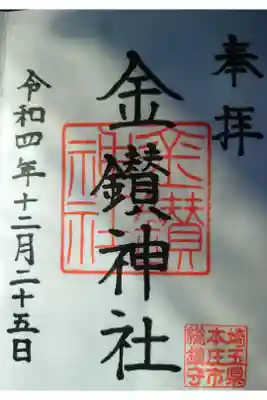 奉拝
金鑚神社
令和四年十二月二十五日
金鑚神社
埼玉県
本庄市